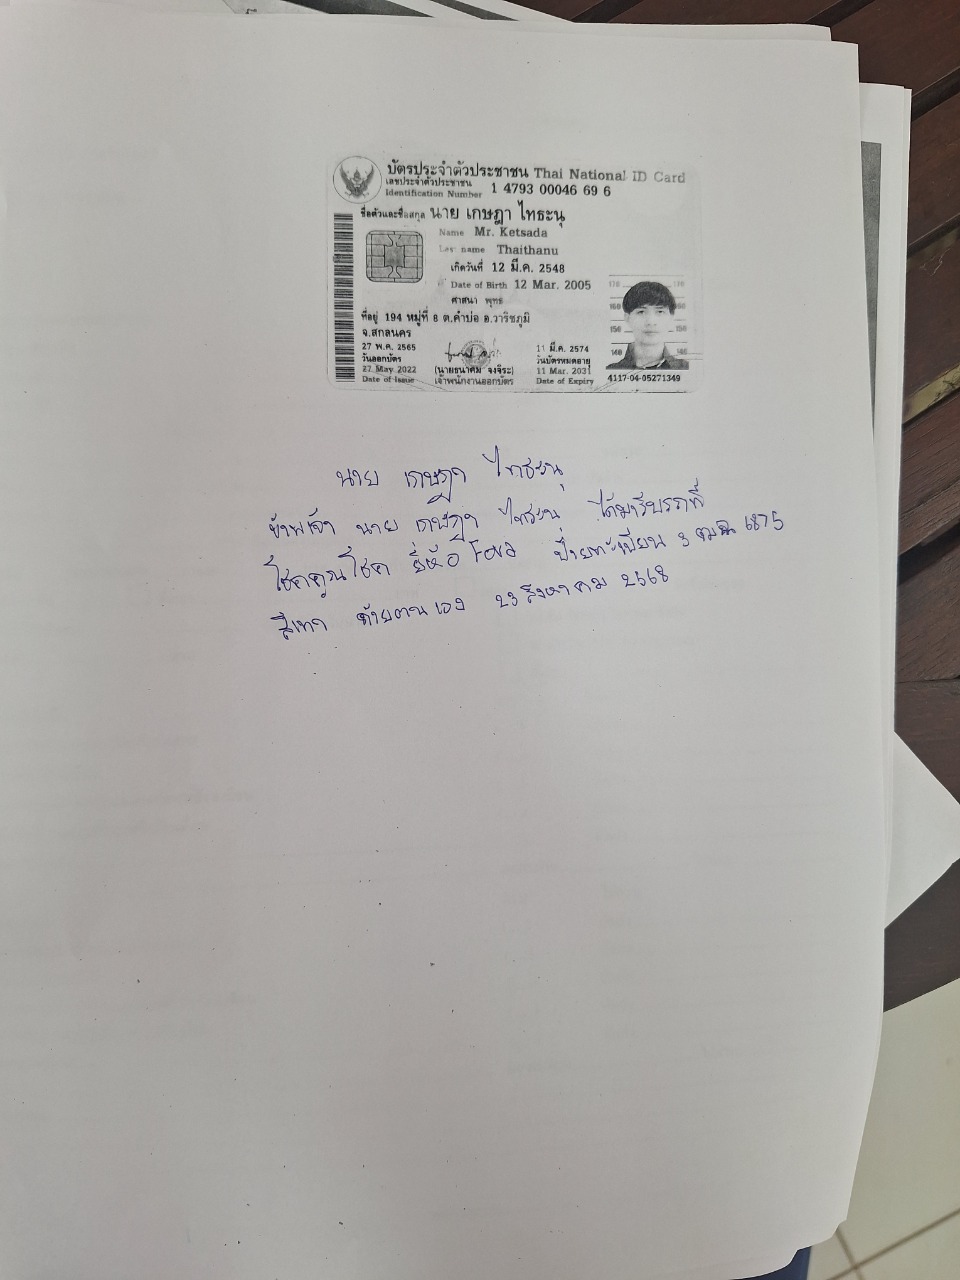 บัตรประจำตัวประชาชน Thai National ID Card
เลขประจำตัวประชาชน
Identification Number 1 4793 00046 69 6
ชื่อตัวและชื่อสกุล นาย เกษฎา ไทธะนุ
Name Mr. Ketsada
Last name Thaithanu
เกิดวันที่ 12 มี.ค. 2548
Date of Birth 12 Mar. 2005
ศาสนา พุทธ
ที่อยู่ 194 หมู่ที่ 8 ต.คำบ่อ อ.วาริชภูมิ
จ.สกลนคร
27 พ.ค. 2565
วันออกบัตร
27 May 2022
Date of Issue
(นายธนาคม จงจิระ)
เจ้าพนักงานออกบัตร
11 มี.ค. 2574
วันบัตรหมดอายุ
11 Mar. 2031
Date of Expiry
170
160 160
150 150
140 140
4117-04-05271349
นาย เกษฎา ไทธะนุ
ข้าพเจ้า นาย เกษฎา ไทธะนุ ได้มารับรถที่
โชคคูณโชค ยี่ห้อ ป้ายทะเบียน 6875
สีเทา ด้วยตนเอง 23 สิงหาคม 2568